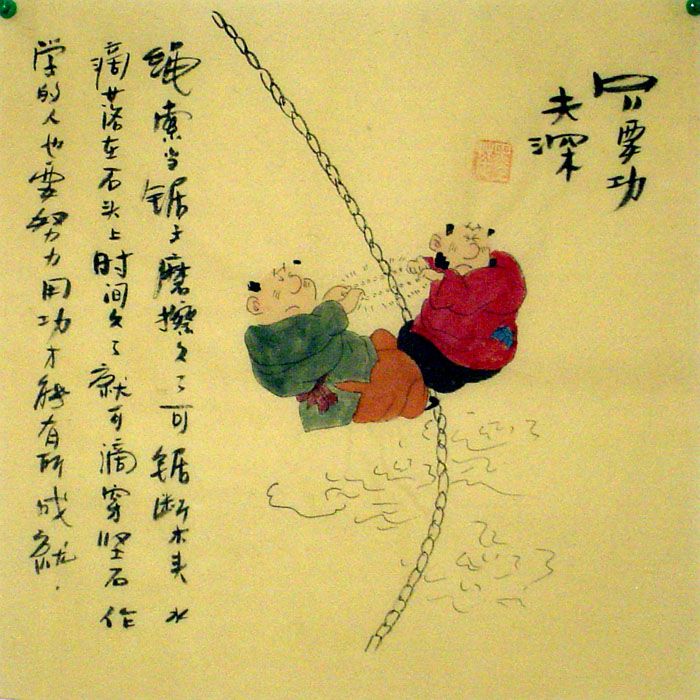 只要功
夫深
绳索当锯子磨擦久了可锯断木头水
滴落在石头上时间久了就可滴穿坚石作
学的人也要努力用功才能有所成就.